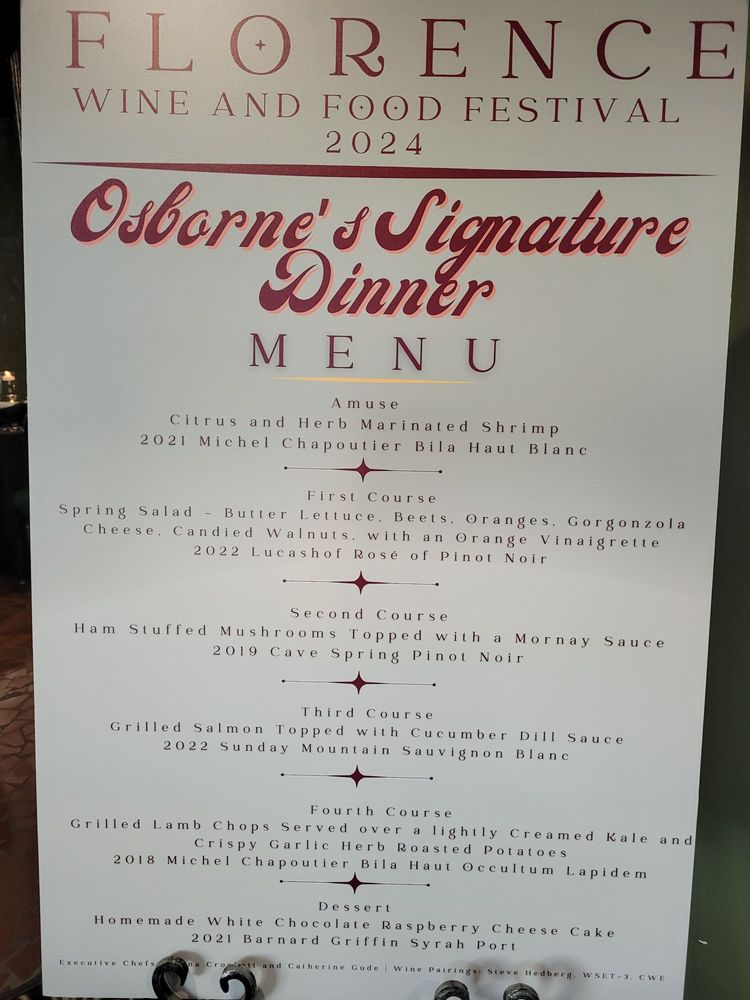 FLORENCE
WINE AND FOOD FESTIVAL
2024
Osborne's Signature
Dinner
MENU
Amuse
Citrus and Herb Marinated Shrimp
2021 Michel Chapoutier Bila Haut Blanc
First Course
Spring Salad - Butter Lettuce, Beets, Oranges, Gorgonzola
Cheese, Candied Walnuts, with an Orange Vinaigrette
2022 Lucashof Rosé of Pinot Noir
Second Course
Ham Stuffed Mushrooms Topped with a Mornay Sauce
2019 Cave Spring Pinot Noir
Third Course
Grilled Salmon Topped with Cucumber Dill Sauce
2022 Sunday Mountain Sauvignon Blanc
Fourth Course
Grilled Lamb Chops Served over a lightly Creamed Kale and
Crispy Garlic Herb Roasted Potatoes
2018 Michel Chapoutier Bila Haut Occultum Lapidem
Dessert
Homemade White Chocolate Raspberry Cheese Cake
2021 Barnard Griffin Syrah Port
Executive Chefs and Catherine Gude | Wine Pairings: Steve Hedberg, WSET-3, CWE